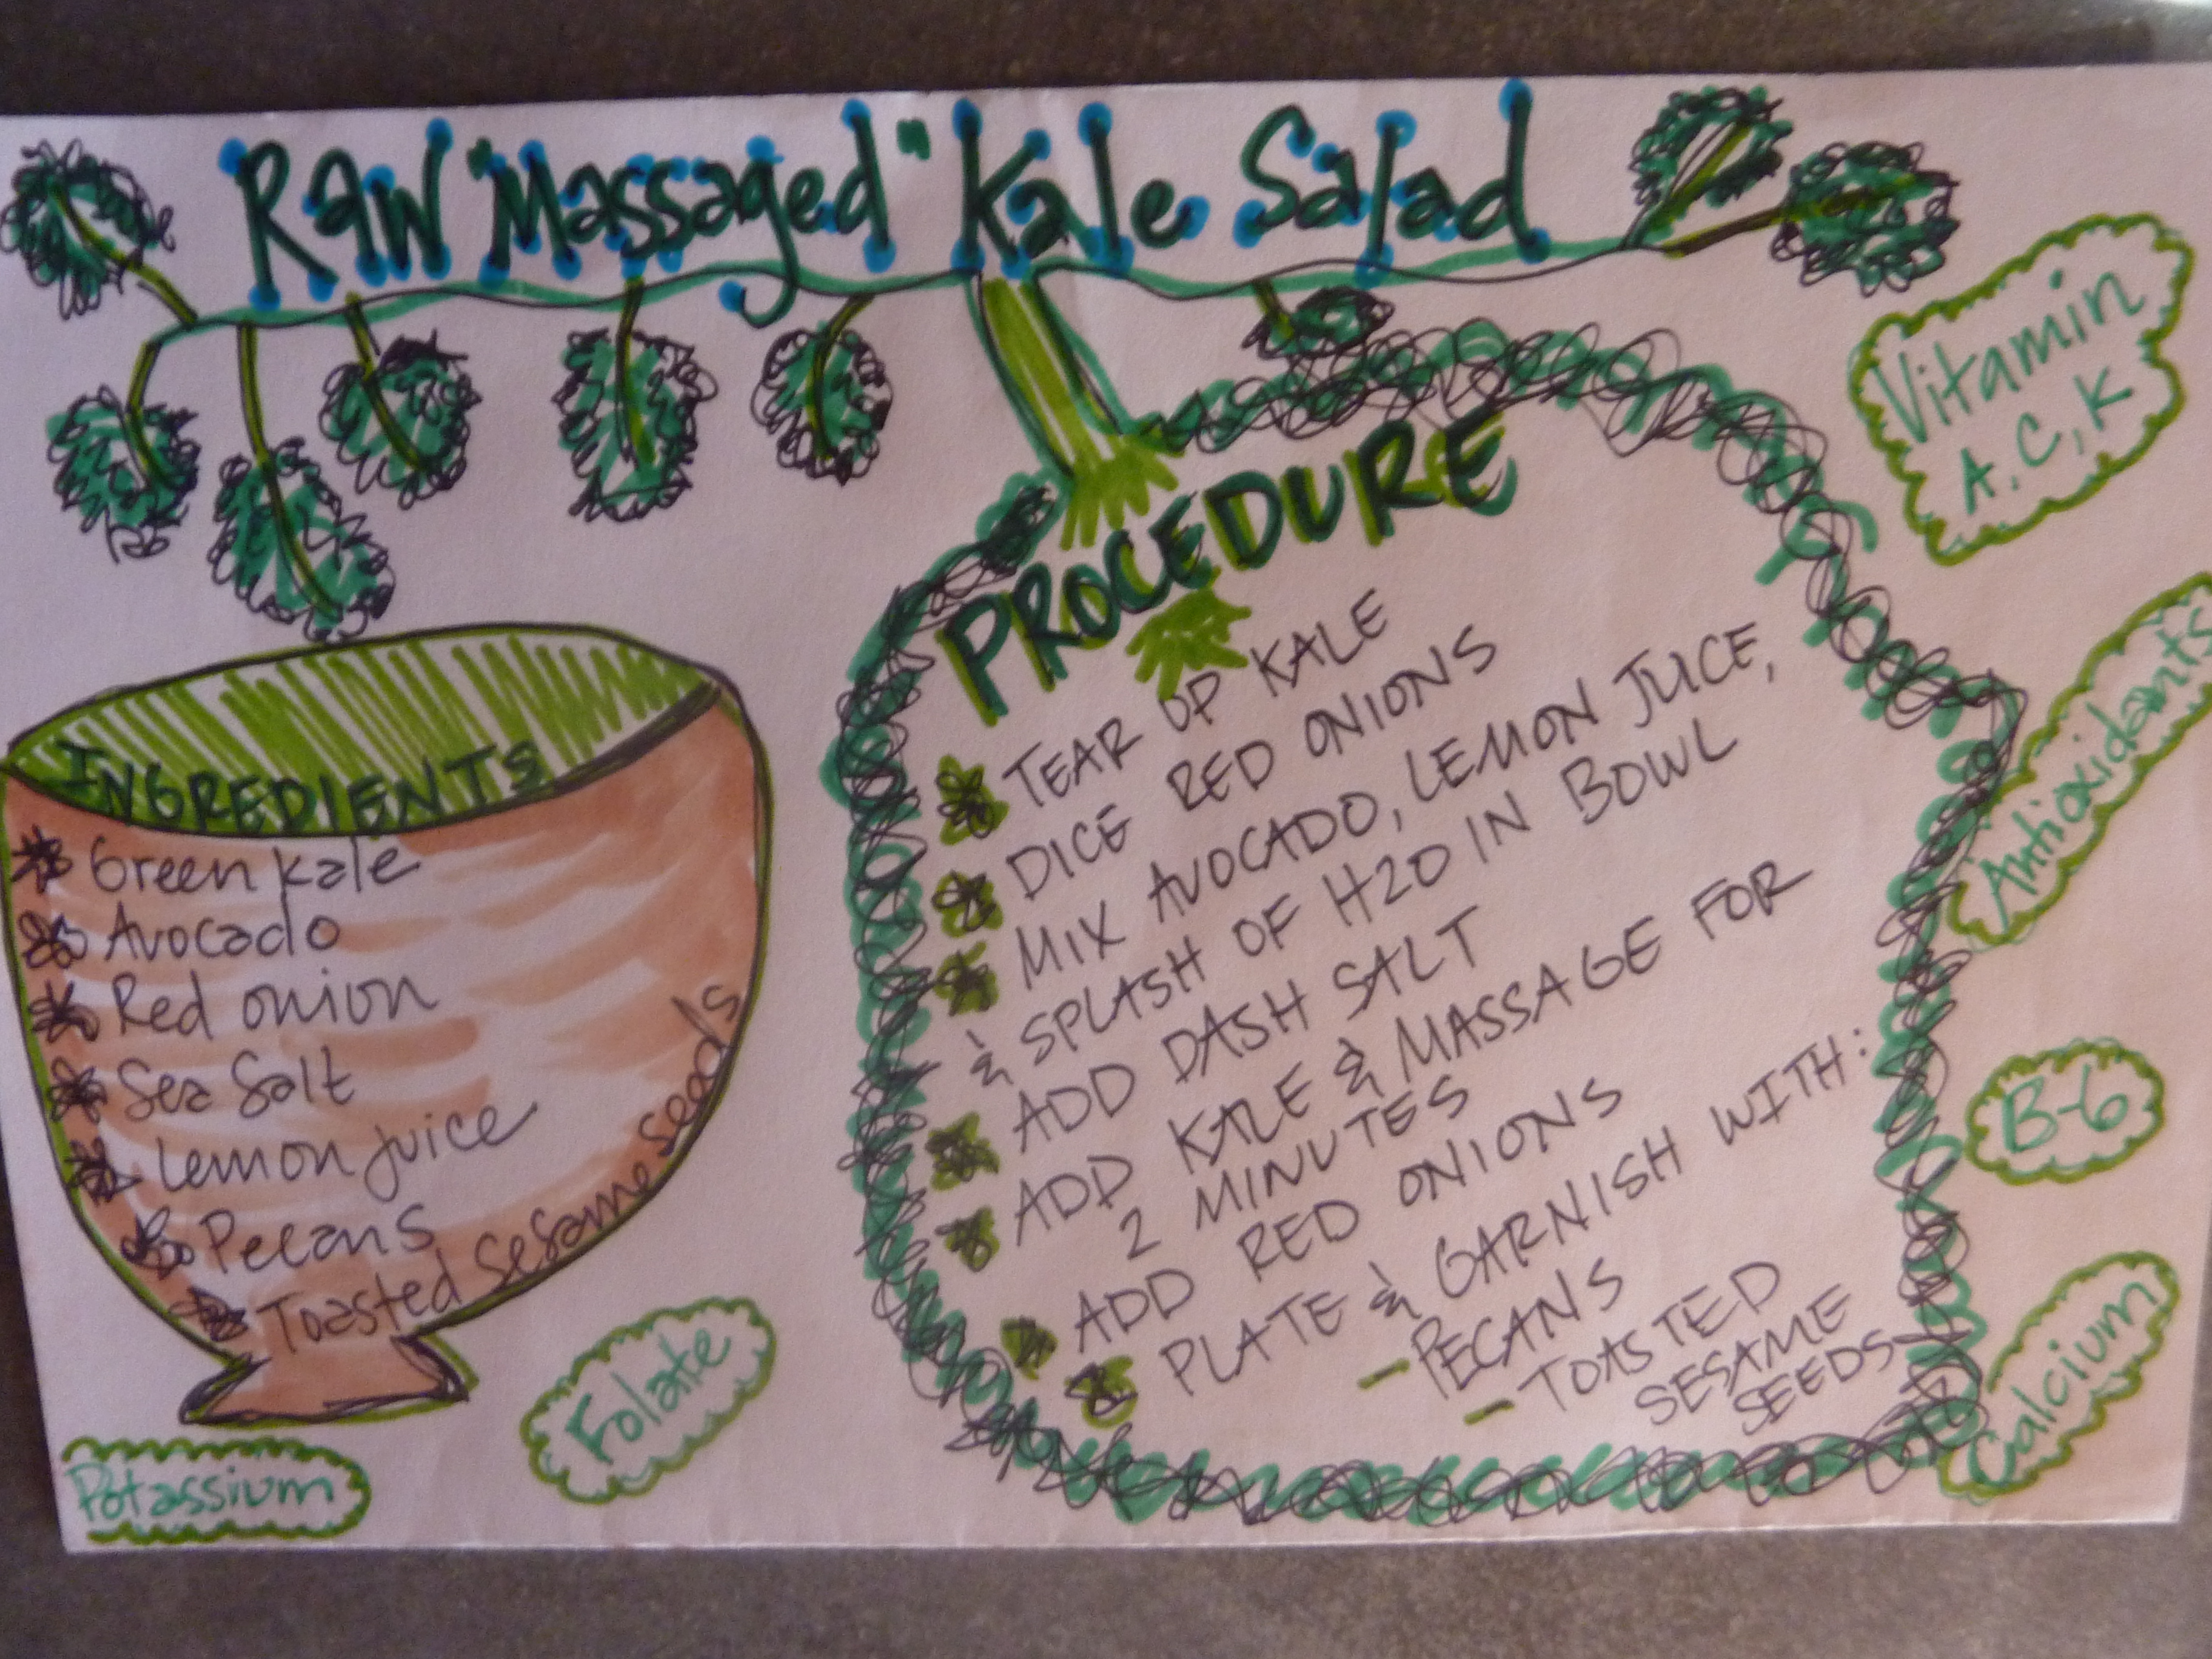 Raw "Massaged" Kale Salad
INGREDIENTS
Green kale
Avocado
Red onion
Sea Salt
Lemon juice
Pecans
Toasted sesame seeds
PROCEDURE
TEAR UP KALE
DICE RED ONIONS
MIX AVOCADO, LEMON JUICE,
& SPLASH OF H2O IN BOWL
ADD DASH SALT
ADD KALE & MASSAGE FOR
2 MINUTES
ADD RED ONIONS
PLATE & GARNISH WITH:
- PECANS
- TOASTED
SESAME
SEEDS
Vitamin
A, C, K
Antioxidants
B-6
Calcium
Folate
Potassium